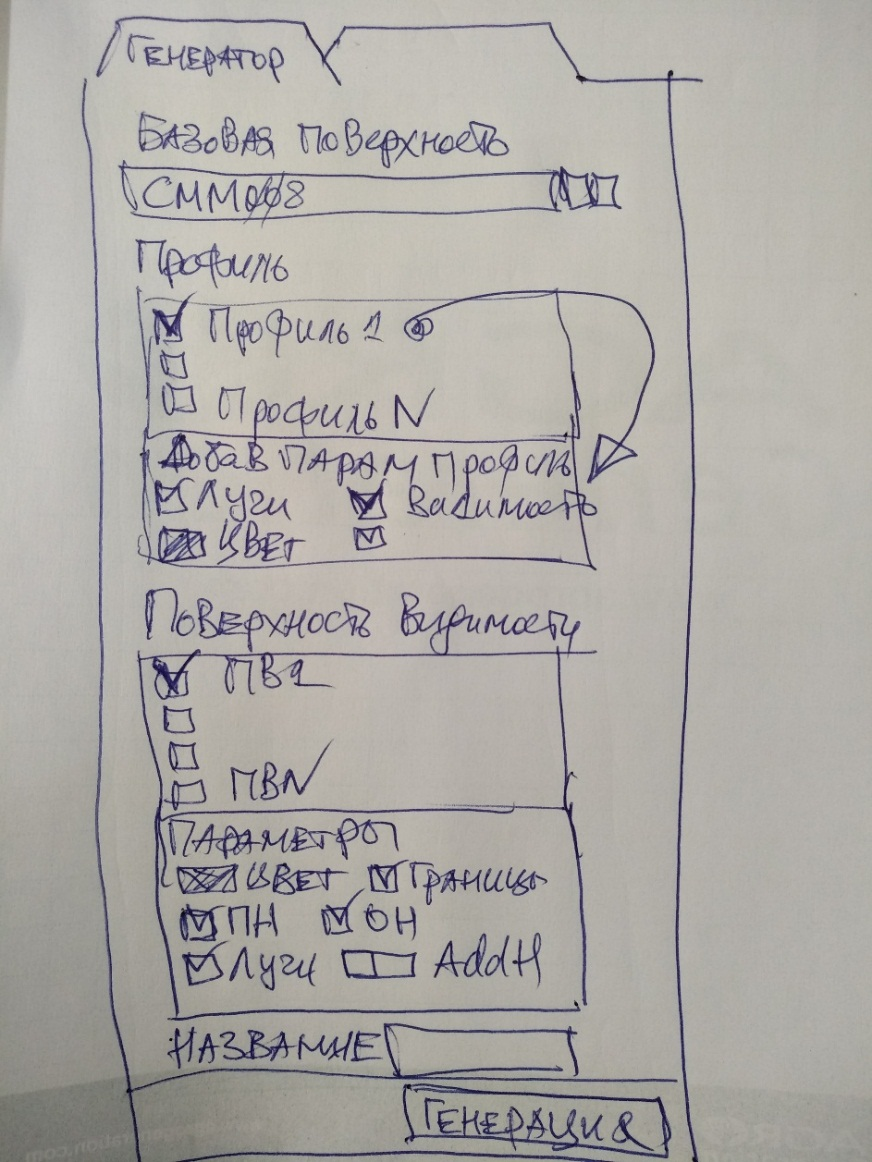 ГЕНЕРАТОР
БАЗОВАЯ ПОВЕРХНОСТЬ
СММ008
Профиль
Профиль 1
Профиль N
ДОБАВ ПАРАМ ПРОФИЛЬ
Лучи Видимость
ЦВЕТ
ПОВЕРХНОСТЬ Видимости
ПВ1
ПВN
ПАРАМЕТРЫ
ЦВЕТ ГРАНИЦЫ
ПН ОН
Лучи AddH
НАЗВАНИЕ
ГЕНЕРАЦИЯ